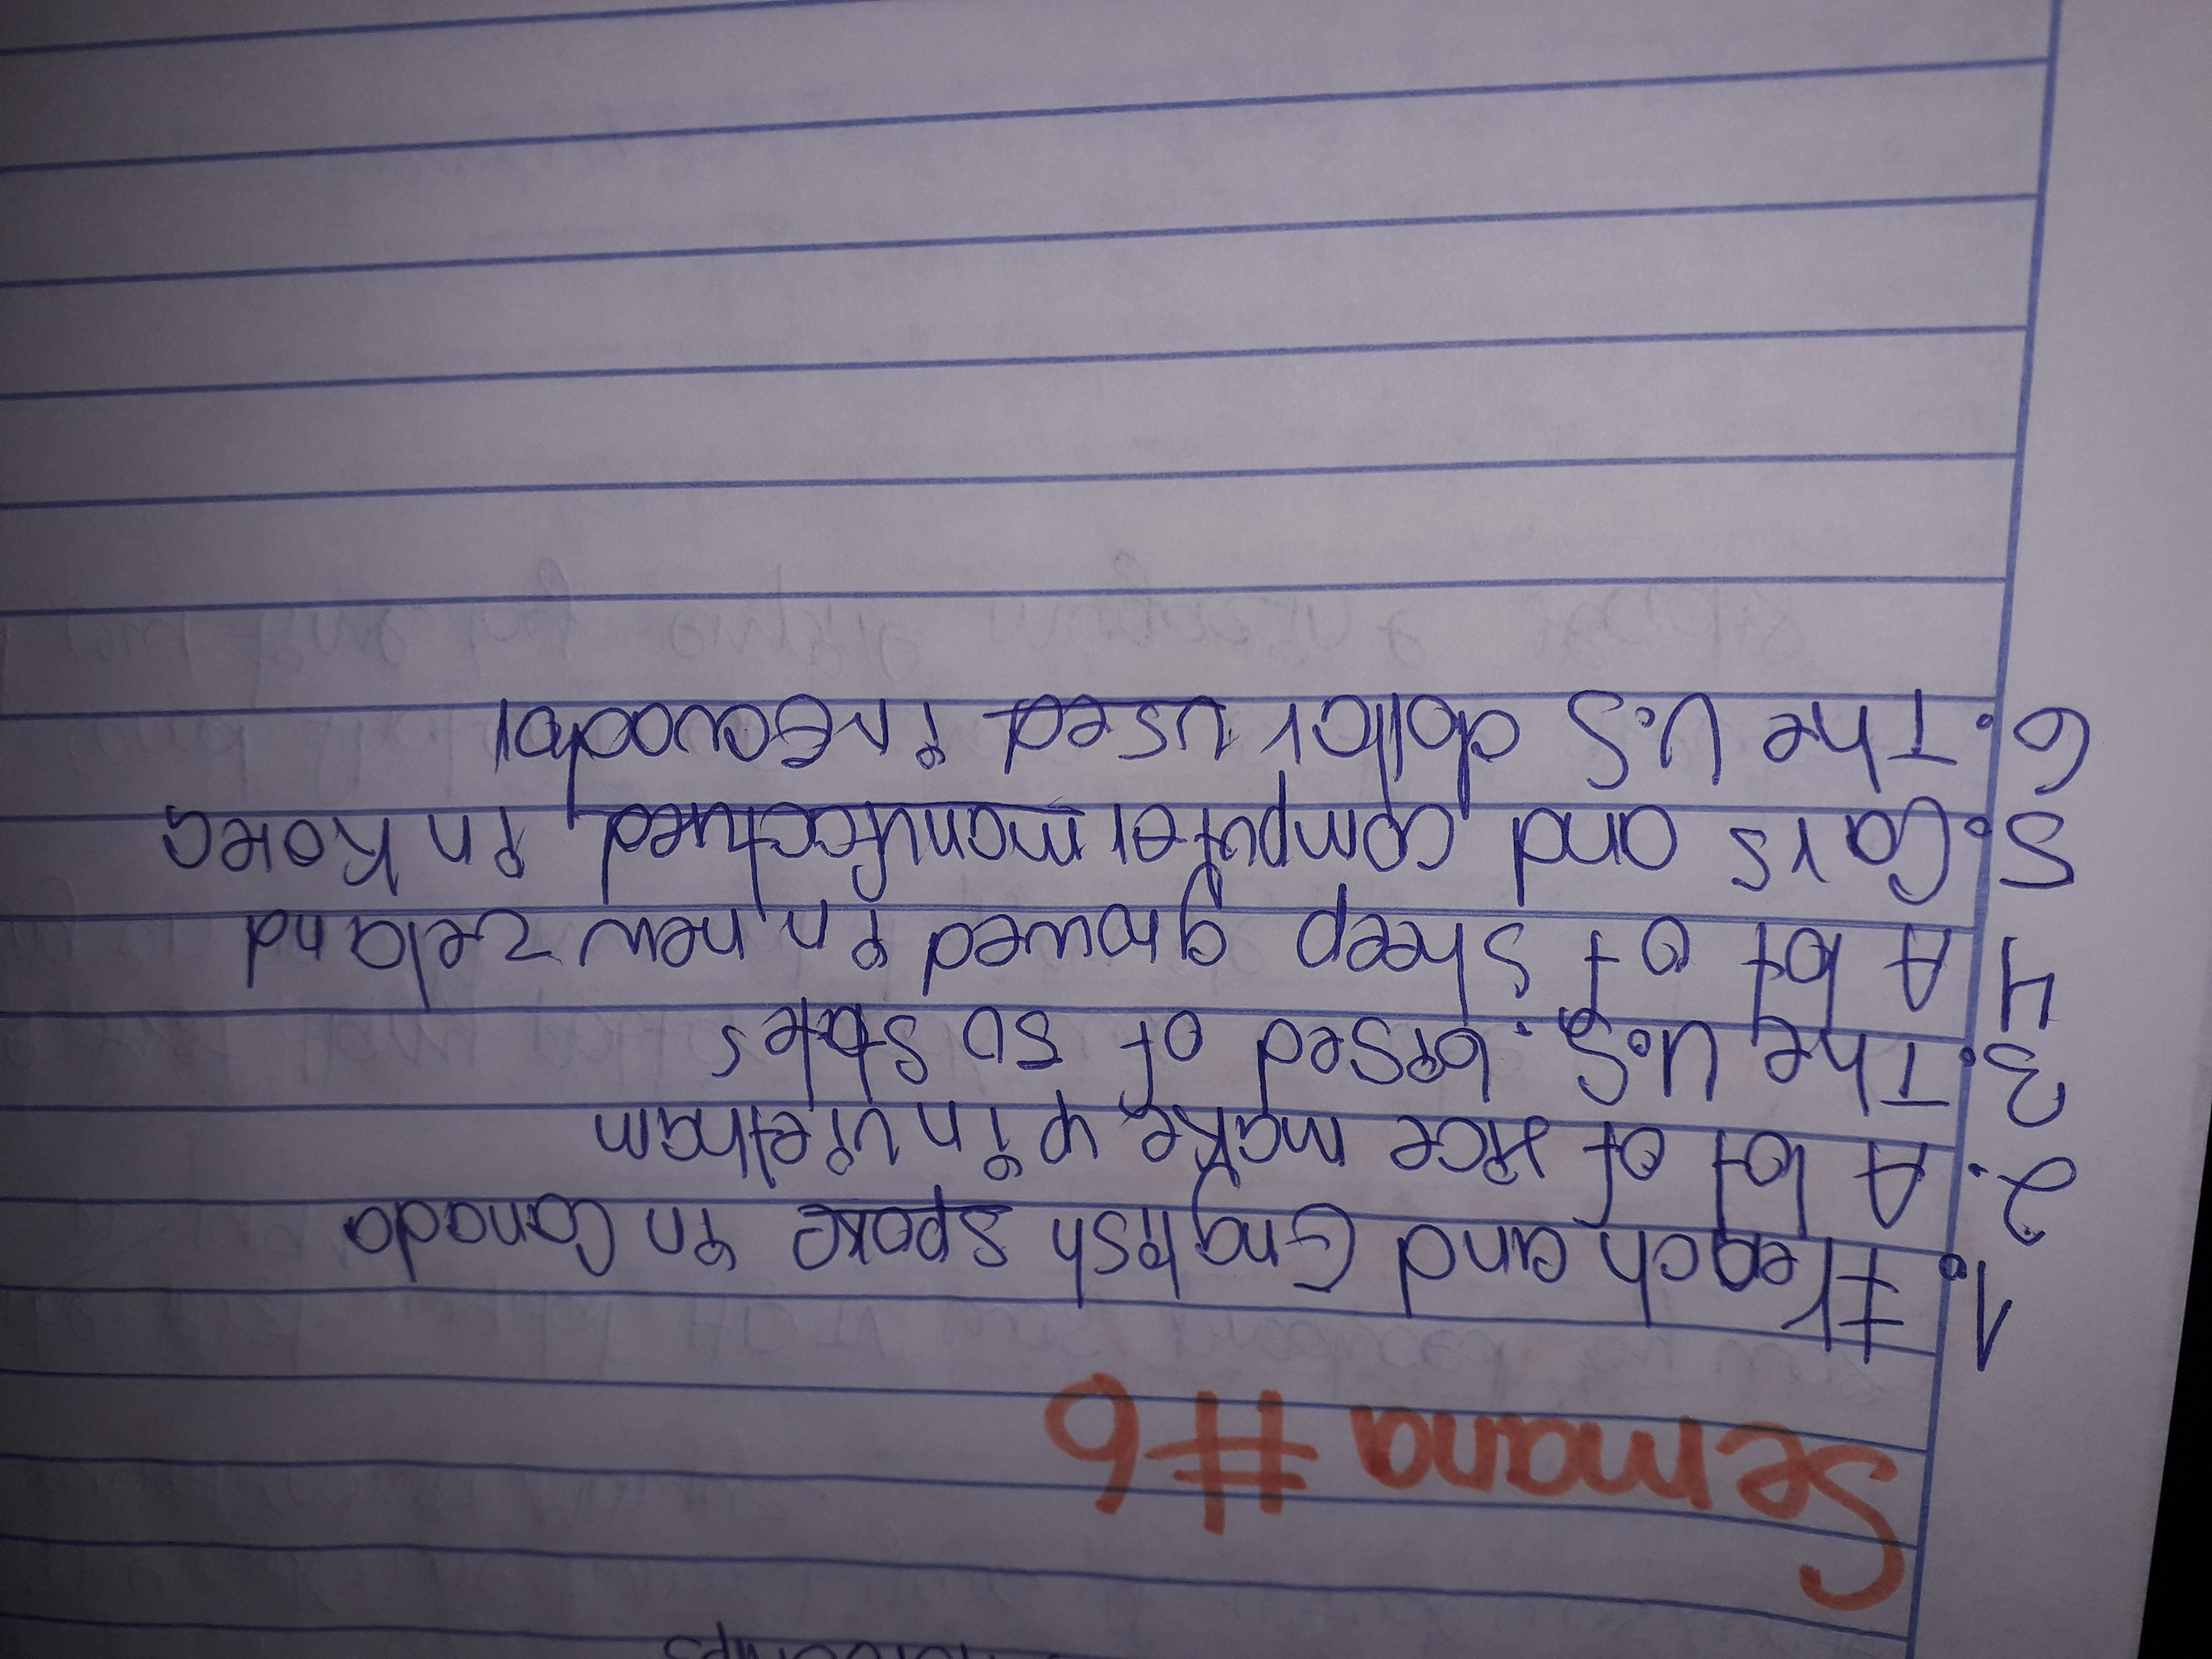 Semana #6
1. French and English spoke in Canada
2. A lot of rice make in vietnam
3. The U.S. of 50 states
4 A lot of Sheep in new zeland
5. Cars and computer manufectured in Korea
6. The U.S dollar used